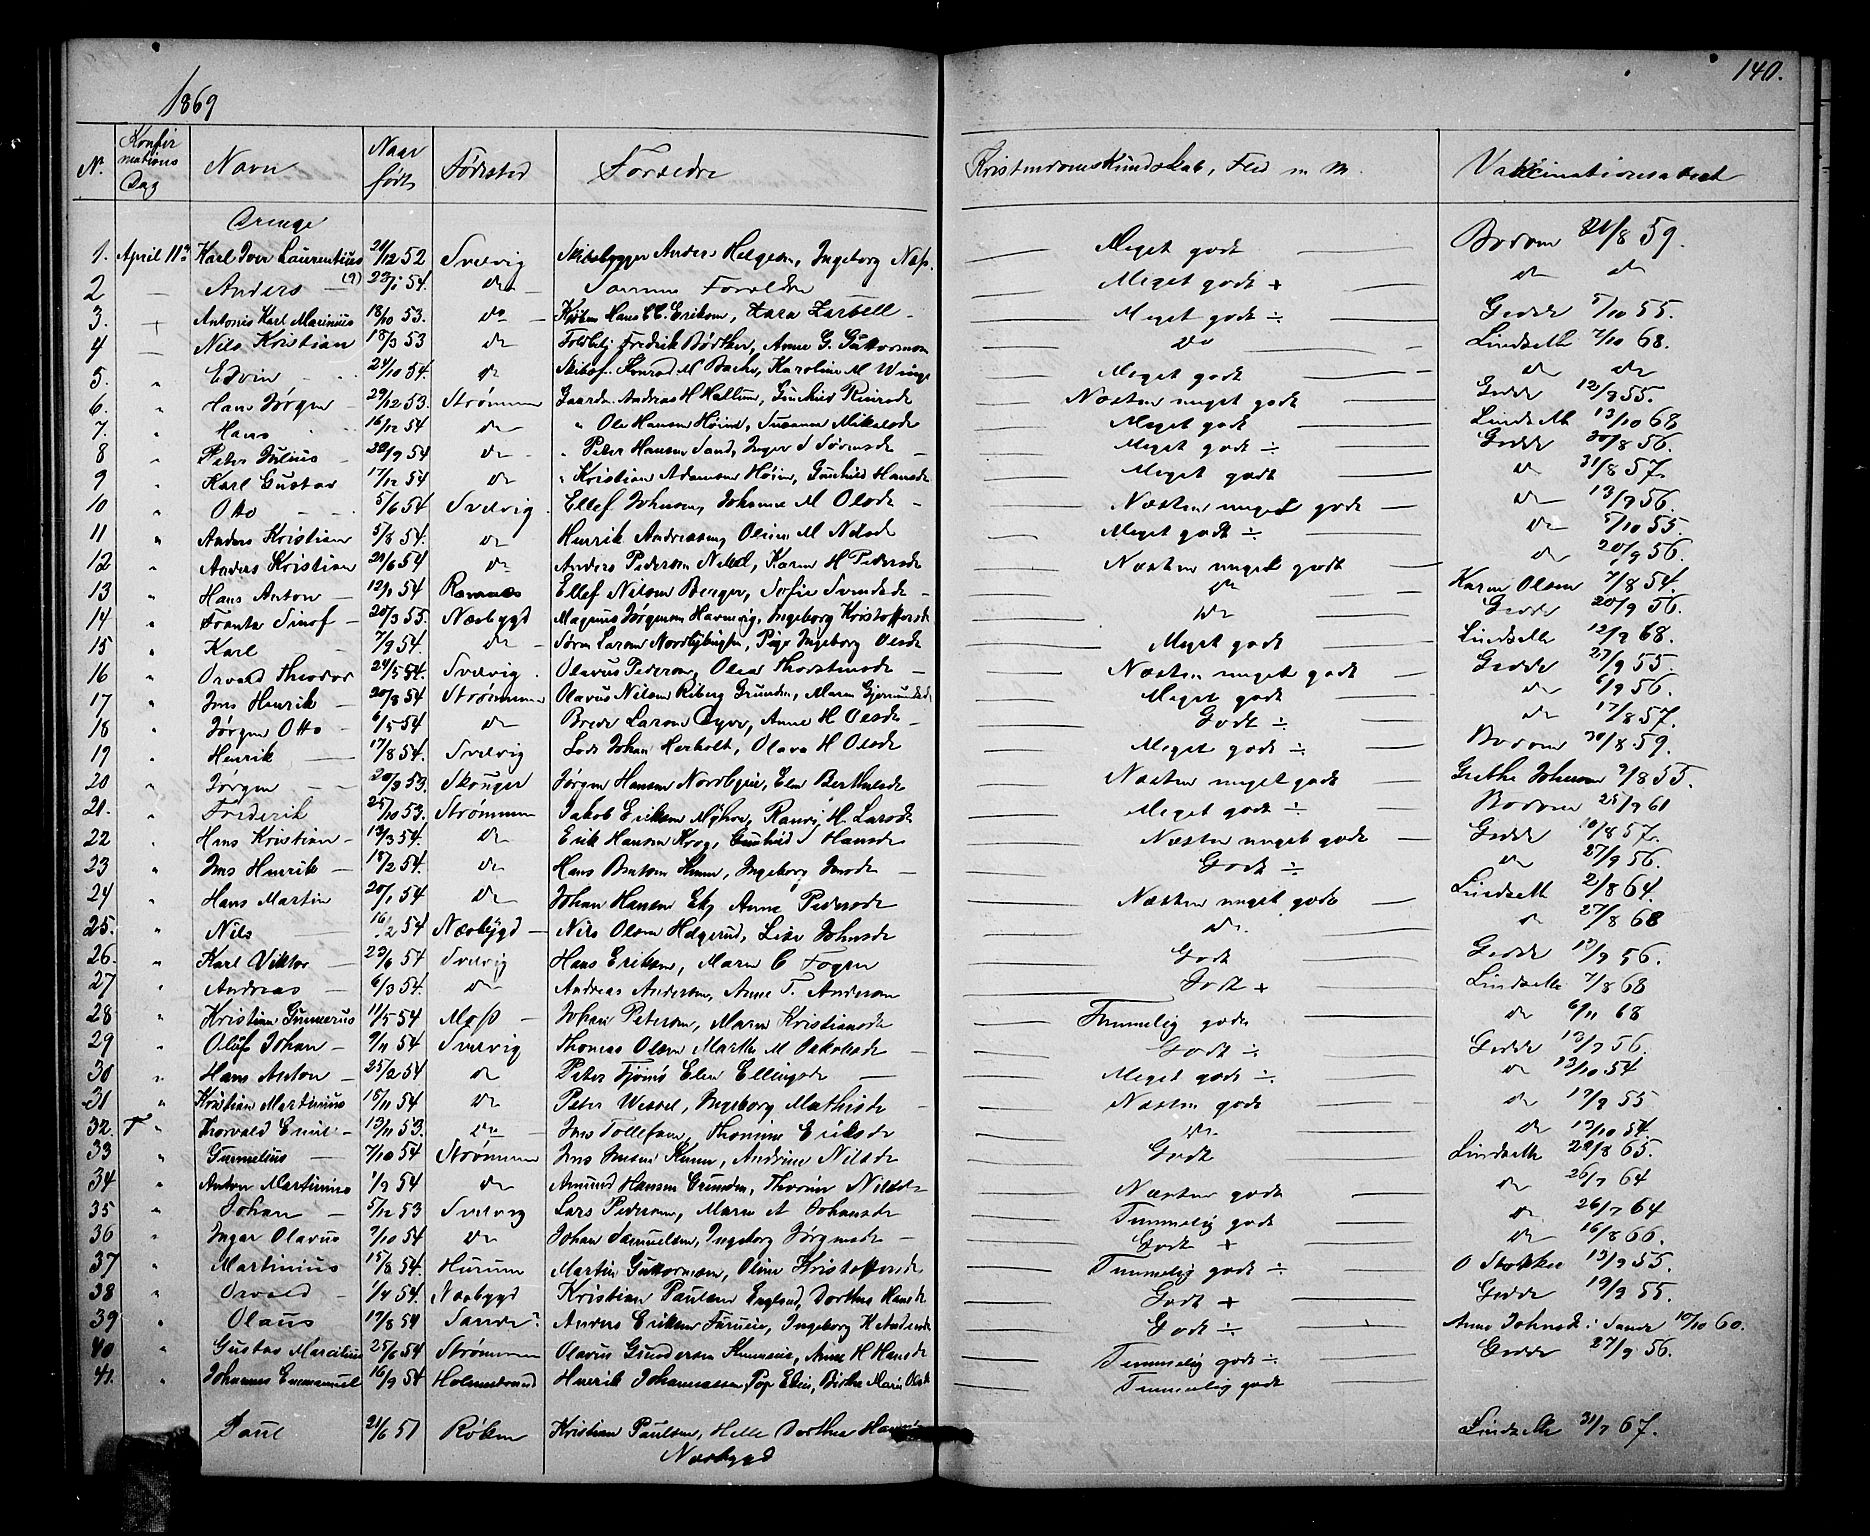 140.
1869
Nr. Konfirmations Dag Navn Naar født Fødested Forældre Kristendomskundskab, Flid m M. Vaccinationsattest
Drenge
1. April 11te Karl Iver Laurentius 21/12 52 Svelvig Skibsbygger Anders Helgesen, Ingeborg Næss. Meget godt Bodom 21/8 59.
2 — Anders (?) 23/1 54. do Samme Forældre Meget godt + do do
3. + Antonis Karl Marinius 18/10 53. do Hans Eriksen, Meget godt ÷ Gedde 5/10 55.
4 — Nils Kristian 18/3 53 do Fredrik Bødtker, Anne G. Guttormsen do Lindseth 7/10 68.
5. " Edvin 24/10 54. do Konrad M Bache, Karoline M Winge Meget godt do do
6. " Hans Jørgen — 29/12 53. Strømmen Gaardm. Andreas H Hallum, Gunhild Næsten meget godt Gedde 12/9 55.
7. " Hans 16/12 54 do " Ole Hansen Høim, Susanne Mikelsdt Meget godt Lindseth 13/10 68
8 " Peter Julius — 29/9 54 do " Peter Hansen Sand, Inger S Sørensdt Meget godt ÷ Gedde 30/8 56.
9 " Karl Gustav 17/12 54 do " Kristian Adamsen Høim, Gunhild Hansdt Meget godt do 31/8 57.
10 " Otto 5/6 54 Svelvig. Ellef Johnsen, Johanne M Olsdt Næsten meget godt do 13/9 56.
11 " Anders Kristian 5/8 54. do Henrik Andreassen, Oline M Nilsdt Meget godt ÷ do 5/10 55
12 " Anders Kristian 21/6 54 do Anders Pedersen Karen H Pedersdt Næsten meget godt do 20/9 56.
13 " Hans Anton — 12/1 54 Ramnes Ellef Nilsen Berger, Sofie Svendsdt do Karen Olsen 7/8 54.
14 " Frantz 20/3 55. Næsbygd Magnus Jørgensen Havnevig, Ingeborg Kristoffersdt do Gedde 20/9 56.
15 " Karl 7/9 54. do Søren Larsen Pige Ingeborg Olsdt Meget godt Lindseth 12/9 68.
16 " Osvald Theodor 24/5 54. Svelvig. Olavus Pedersen, Olea Thorstensdt Næsten meget godt Gedde 27/9 55.
17 " Jens Henrik — 20/8 54 Strømmen Olavus Nilsen Maren Gjermundsdt Meget godt do 6/9 56.
18 " Jørgen Otto 6/5 54 do Brede Larsen Anne H Olsdt Godt ÷ do 17/8 57.
19 " Henrik 17/8 54. Svelvig Lods Johan Herholt, Olava H Olsdt Meget godt ÷ Bodom 30/8 59.
20 " Jørgen 20/3 53. Skouger Jørgen Hansen Nordbye, Elen Berthelsdt Næsten meget godt Grethe Johnsen 9/8 55.
21. " Frederik 25/10 53. Strømmen Jakob Eriksen Myhre, Randi H. Larsdt Meget godt ÷ Bodom 25/9 61
22 " Hans Kristian — 13/3 54. do Erik Hansen Krog, Gunhild S Hansdt Næsten meget godt Gedde 10/8 57.
23 " Jens Henrik — 18/2 54. do Hans Ingeborg Godt ÷ do 27/9 56.
24 " Hans Martin 20/1 54 do Johan Hansen Ek, Anne Pedersdt Næsten meget godt Lindseth 2/8 64.
25. " Nils 16/2 54 Næsbygd — Nils Olsen Helgerud, Lise Johnsdt do. do 27/8 68
26. " Karl Viktor — 23/6 54 Svelvig Hans Eriksen, Maren C Fogen Godt Gedde 13/9 56.
27 " Andreas — 6/3 54. do Andreas Andersen, Anne T. Andersen Godt + Lindseth 7/8 68
28 " Kristian Gunnerus 11/5 54 Moss — Johan Petersen, Maren Kristiansdt Temmelig godt do 6/11 68
29 " Oluf Johan — 9/11 54 Svelvig Thomas Olsen Marthe M Jakobsdt Godt ÷ Gedde 13/9 56.
30 " Hans Anton — 25/2 54 do Peter Tjømø Elen Ellingsdt Meget godt ÷ do 13/10 54
31 " Kristian Martinius 15/11 54 do Peter Wessel, Ingeborg Mathisdt Næsten godt do 17/9 55
32. " Thorvald Emil — 13/11 53. do Jens Tollefsen, Thomine Eriksdt do do 13/10 54.
33 " Gunnelius 7/10 54 Strømmen Jens Andrine Nilsdt Godt Lindseth 29/8 65.
34 " Anton Martinius 1/3 54 do Amund Hansen Thorine Nilsdt Næsten godt do 26/7 64
35 " Johan — 5/12 53 Svelvig Lars Pedersen, Maren A Johansdt Temmelig godt do 26/7 64
36 " Ingar Olavus 9/10 54 do Johan Samuelsen, Ingeborg Jørgensdt Godt + do 16/8 66.
37 " Martinius 15/8 54. Hurum Martin Guttormsen, Oline Kristoffersdt Temmelig godt ÷ O Stokke 13/9 55.
38 " Osvald 1/4 54. Næsbygd Kristian Paulsen Englund, Dorthea Hansdt Godt + Gedde 19/9 55.
39 " Olaus 17/8 54 Sande Anders Eriksen Ingeborg H Andersdt Godt ÷ Anne Johnsdt i Sande 10/10 60.
40 " Gustav Marcilius 25/6 54 Strømmen Olavus Gundersen Anne H Hansdt Temmelig godt ÷ Gedde 27/9 56.
41. " Johannes Emmanuel 16/9 54 Holmestrand Henrik Johannessen, Pige Elin Birthe Marie Olsdt Temmelig godt
Paul 21/6 51 Røken Kristian Paulsen, Helle Dorthea Næsbygd Lindseth 31/7 67.